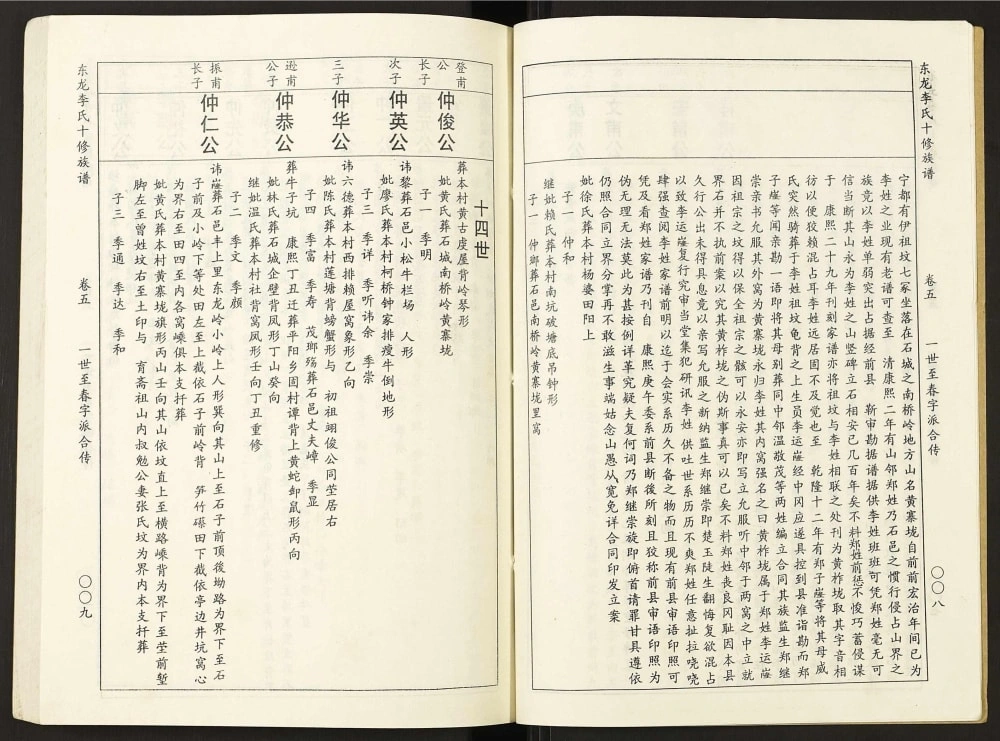 东龙李氏十修族谱
卷五
一世至春字派合传
〇〇八
宁都有伊祖坟七冢坐落在石城之南桥岭地方山名黄寨垅自前前宏治年间已为
李姓之业现有老谱可查至 清康熙二年有山邻郑姓乃石邑之惯行侵占山界之
族竟以李姓单弱突出占据经前县 靳审勘据谱据供李姓班班可凭郑姓毫无可
信当断其山永为李姓之山竖碑立石相安已几百年矣不料郑姓前愆不悛巧蓄侵谋
于 康熙二十九年刊刻家谱亦将祖坟与李姓相联之处刊为黄柞垅取其字音相
彷以便狡赖混占耳李姓远居固不及觉也至 乾隆十二年有郑子薩等将其母威
氏突然骑葬于李姓祖坟龟背之上生员李运薩经中冈应遂具控到县准诣勘而郑
子薩等闻亲勘一语即将其母别葬同中邻温敬茂等两姓编立合同其族监生郑继
崇亲书允服其外窝为黄寨垅永归李姓其内窝强名之曰黄柞垅属于郑姓李运薩
因祖宗之坟得以保全祖宗之骸可以永安亦即写立允服听中邻于两窝之中立就
界石并不执前案以究其黄柞垅之伪斯事真可以已矣不料郑姓丧良冈耻因本县
久行公出未得具息竟以亲写允服之新纳监生郑继崇即楚玉陡生翻悔复欲混占
以致李运薩复行究审当堂集犯研讯李姓 供吐世系历历不爽郑姓任意扯拉哓哓
肆强查阅李姓家谱前明以迄于会实系历久不备之物而且现有前县审语印照可
凭及看郑姓家谱乃刊自 康熙庚午委系前县断後所刻且狡称前县审语印照为
伪无理无法莫此为甚按例详革究疑夫复何词乃郑继崇旋即俯首请罪甘具遵依
仍照合同立界分掌再不敢滋生事端姑念山愚从宽免详合同印发立案
妣徐氏葬本村杨婆田阳上
子一 仲和
继妣赖氏葬本村坑破塘底吊钟形
子一 仲瑯葬石邑南桥岭黄寨垅里窝
十四世
登甫公长子
仲俊公
葬本村黄古虔屋背岭琴形
妣黄氏葬石城南桥岭黄寨垅
子一 季明
次子
仲英公
讳黎葬石邑小松牛栏场 人形
妣廖氏葬本村柯桥钟家排瘦牛倒地形
子三 季详 季听讳余 季崇
三子
仲华公
讳六德葬本村西排赖屋窝象形乙向
妣陈氏葬本村莲塘背螃蟹形与 初祖翊俊公同茔居右
子四 季富 季寿 茂瑯殇葬石邑丈夫嶂 季显
逊甫公子
仲恭公
葬牛子坑 康熙丁丑迁葬平阳乡固村谭背上黄蛇卸鼠形丙向
妣林氏葬石城企壁背凤形丁山癸向
继妣温氏葬本村社背窝凤形壬向丁丑重修
子二 季文 季颜
振甫长子
仲仁公
讳薩葬石邑丰上里东龙岭小岭上人形巽向其山上至石子前顶後坳路为界下至石
子前及小岭下等处田左至上截依石子前岭背 笋竹礤田下截依亭边井坑窝心
为界右至田四至内各窝嵊俱本支扦葬
妣黄氏葬本村黄寨垅旗形丙山壬向其山依坟直上至横路嵊背为界下至茔前堑
脚左至曾姓坟右至土印与 育斋祖山内叔勉公妻张氏坟为界内本支扦葬
子三 季通 季达 季和
东龙李氏十修族谱
卷五
一世至春字派合传
〇〇九